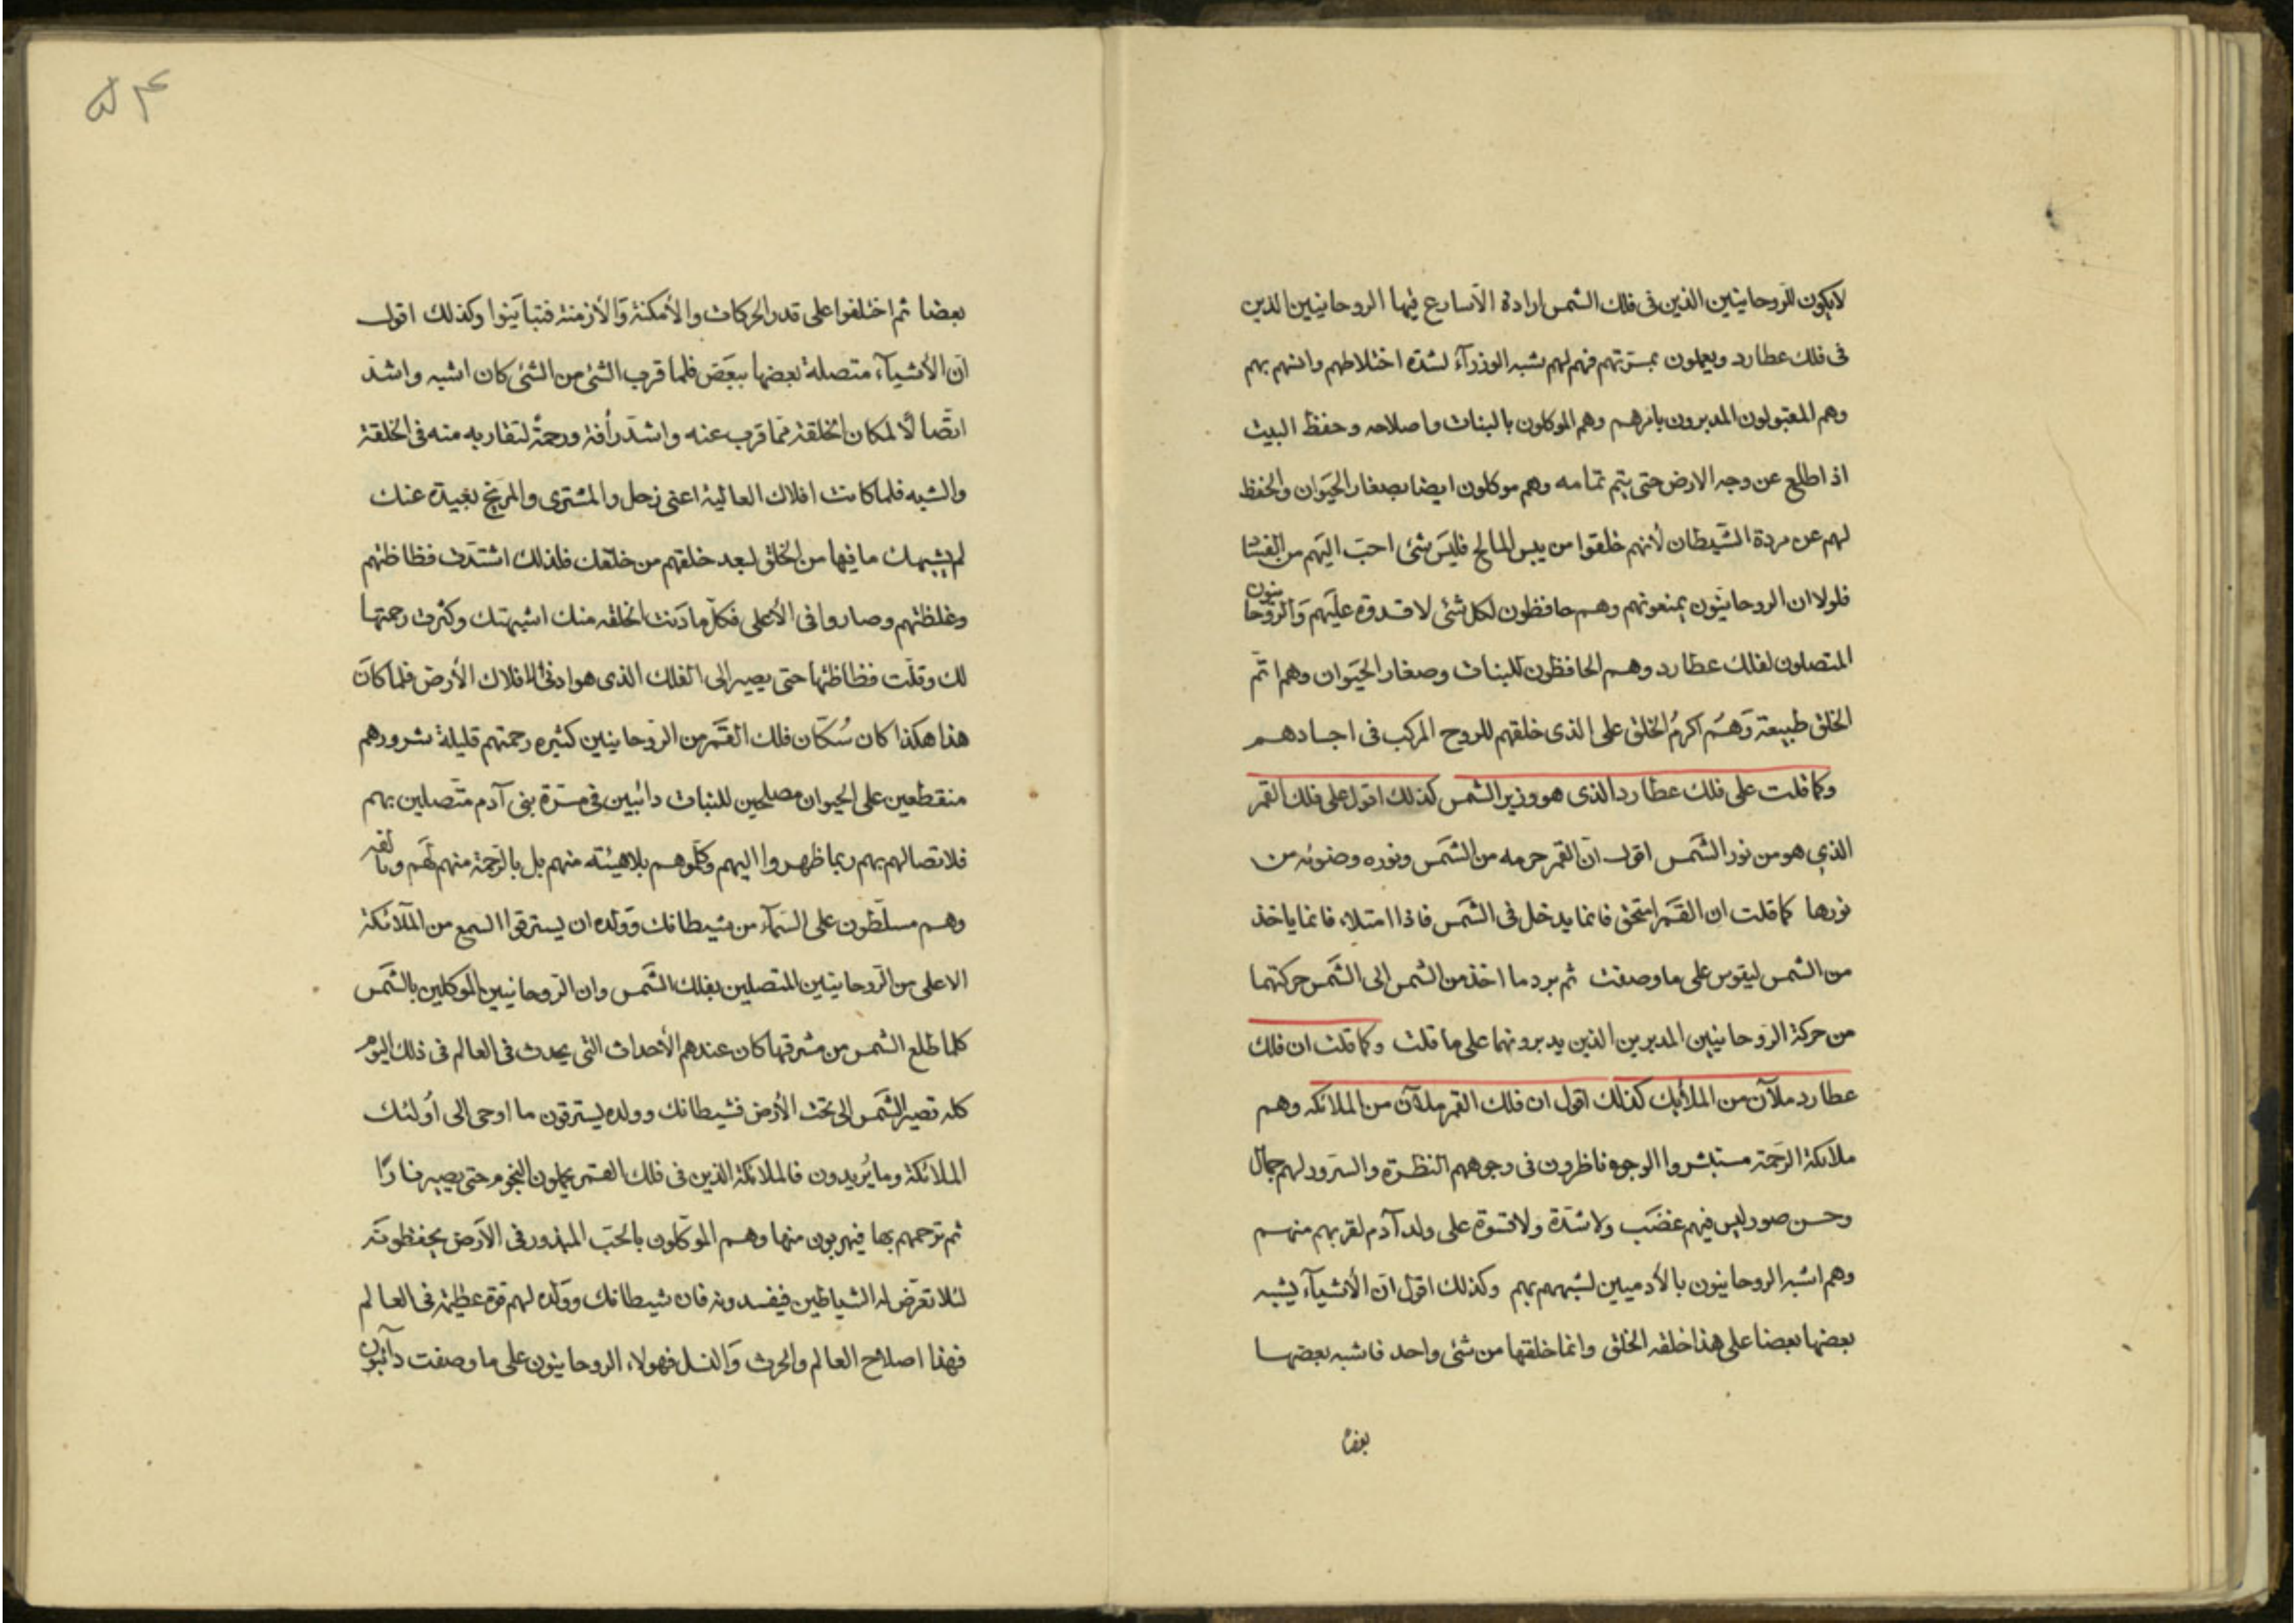 لايكون للروحانيين الذين فى فلك الشمس ارادة الا سارع فيها الروحانيين الذين
فى فلك عطارد ويعملون بمسرتهم فهم لهم شبه الوزرآء لشدة اختلاطهم وانسهم بهم
وهم المقبولون المدبرون بامرهم وهم الموكلون بالنبات واصلاحه وحفظ البيت
اذا طلع عن وجه الارض حتى يتم تمامه وهم موكلون ايضا بصغار الحيوان والحفظ
لهم عن مردة الشيطان لأنهم خلقوا من يبس المالح فليس شئ احب اليهم من الفساد
فلولا ان الروحانيون يمنعونهم وهم حافظون لكل شئ لا قدوة عليهم والروحانيون
المتصلون لفلك عطارد وهم الحافظون للنبات وصغار الحيوان وهم اتم
الخلق طبيعة وهم اكرم الخلق على الذى خلقهم للروح المركب فى اجسادهم
وكما قلت على فلك عطارد الذى هو وزير الشمس كذلك اقول على فلك القمر
الذى هو من نور الشمس اقول ان القمر جرمه من الشمس ونوره وضوئه من
نورها كما قلت ان القمر امتحق فانما يدخل فى الشمس فاذا امتلاء فانما ياخذ
من الشمس ليقوس على ما وصفت ثم يرد ما اخذ من الشمس الى الشمس حركتهما
من حركة الروحانيين المدبرين الذين يدبرونهما على ما قلت وكما قلت ان فلك
عطارد ملآن من الملأيك كذلك اقول ان فلك القمر ملآن من الملائكه وهم
ملائكة الرحمة مستبشروا الوجوه ناظرون فى وجوههم النظرة والسرور لهم جمال
وحسن صور ليس فيهم غضب ولا شدة ولا قسوة على ولد آدم لقربهم منهم
وهم اشبه الروحانيون بالأدميين لشبههم بهم وكذلك اقول ان الأشيآء يشبه
بعضها بعضا على هذا خلقه الخلق وانما خلقها من شئ واحد فاشبه بعضها
بعضا
۵۴
بعضا ثم اختلفوا على قدر الحركات والأمكنة والأزمنة فتباينوا وكذلك اقول
ان الأشيآء متصلة بعضها ببعض فلما قرب الشئ من الشئ كان اشبه واشد
اتصالا لمكان الخلقة مما قرب عنه واشد رأفة ورحمة لتقاربه منه فى الخلقة
والشبه فلما كانت افلاك العالية اعنى زحل والمشترى والمريخ بعيدة عنك
لم يشبهك ما فيها من الخلق لبعد خلقهم من خلقك فلذلك اشتدت فظاظتهم
وغلظتهم وصاروا فى الأعلى فكل ما دنت الخلقه منك اشبهتك وكثرت رحمتها
لك وقلت فظاظتها حتى يصير الى الفلك الذى هو ادنى الافلاك الأرض فلما كان
هذا هكذا كان سكان فلك القمر من الروحانيين كثيره رحمتهم قليلة شرورهم
منقطعين على الحيوان مصلحين للنبات دائبين فى مسرة بنى آدم متصلين بهم
فلاتصالهم بهم ربما ظهروا اليهم وكلموهم بلا هيئته منهم بل بالرحمة منهم لهم وبالفه
وهم مسلطون على السمآء من شيطانك وولده ان يسترقوا السمع من الملائكة
الاعلى من الروحانيين المتصلين بفلك الشمس وان الروحانيين الموكلين بالشمس
كلما طلع الشمس من مشرقها كان عندهم الأحداث التى يحدث فى العالم فى ذلك اليوم
كله تصير الشمس الى تحت الأرض فشيطانك وولده ليسترقون ما اوحى الى أولئك
الملائكة وما يريدون فالملائكة الذين فى فلك القمر يحملون النجوم حتى يصير نارا
ثم ترجمهم بها فيهربون منها وهم الموكلون بالحب المبذور فى الأرض يحفظونه
لئلا تعرض له الشياطين فيفسدونه فان شيطانك وولده لهم قوة عظيمة فى العالم
فهذا اصلاح العالم والحرث والنسل فهولاء الروحانيون على ما وصفت دآئبون